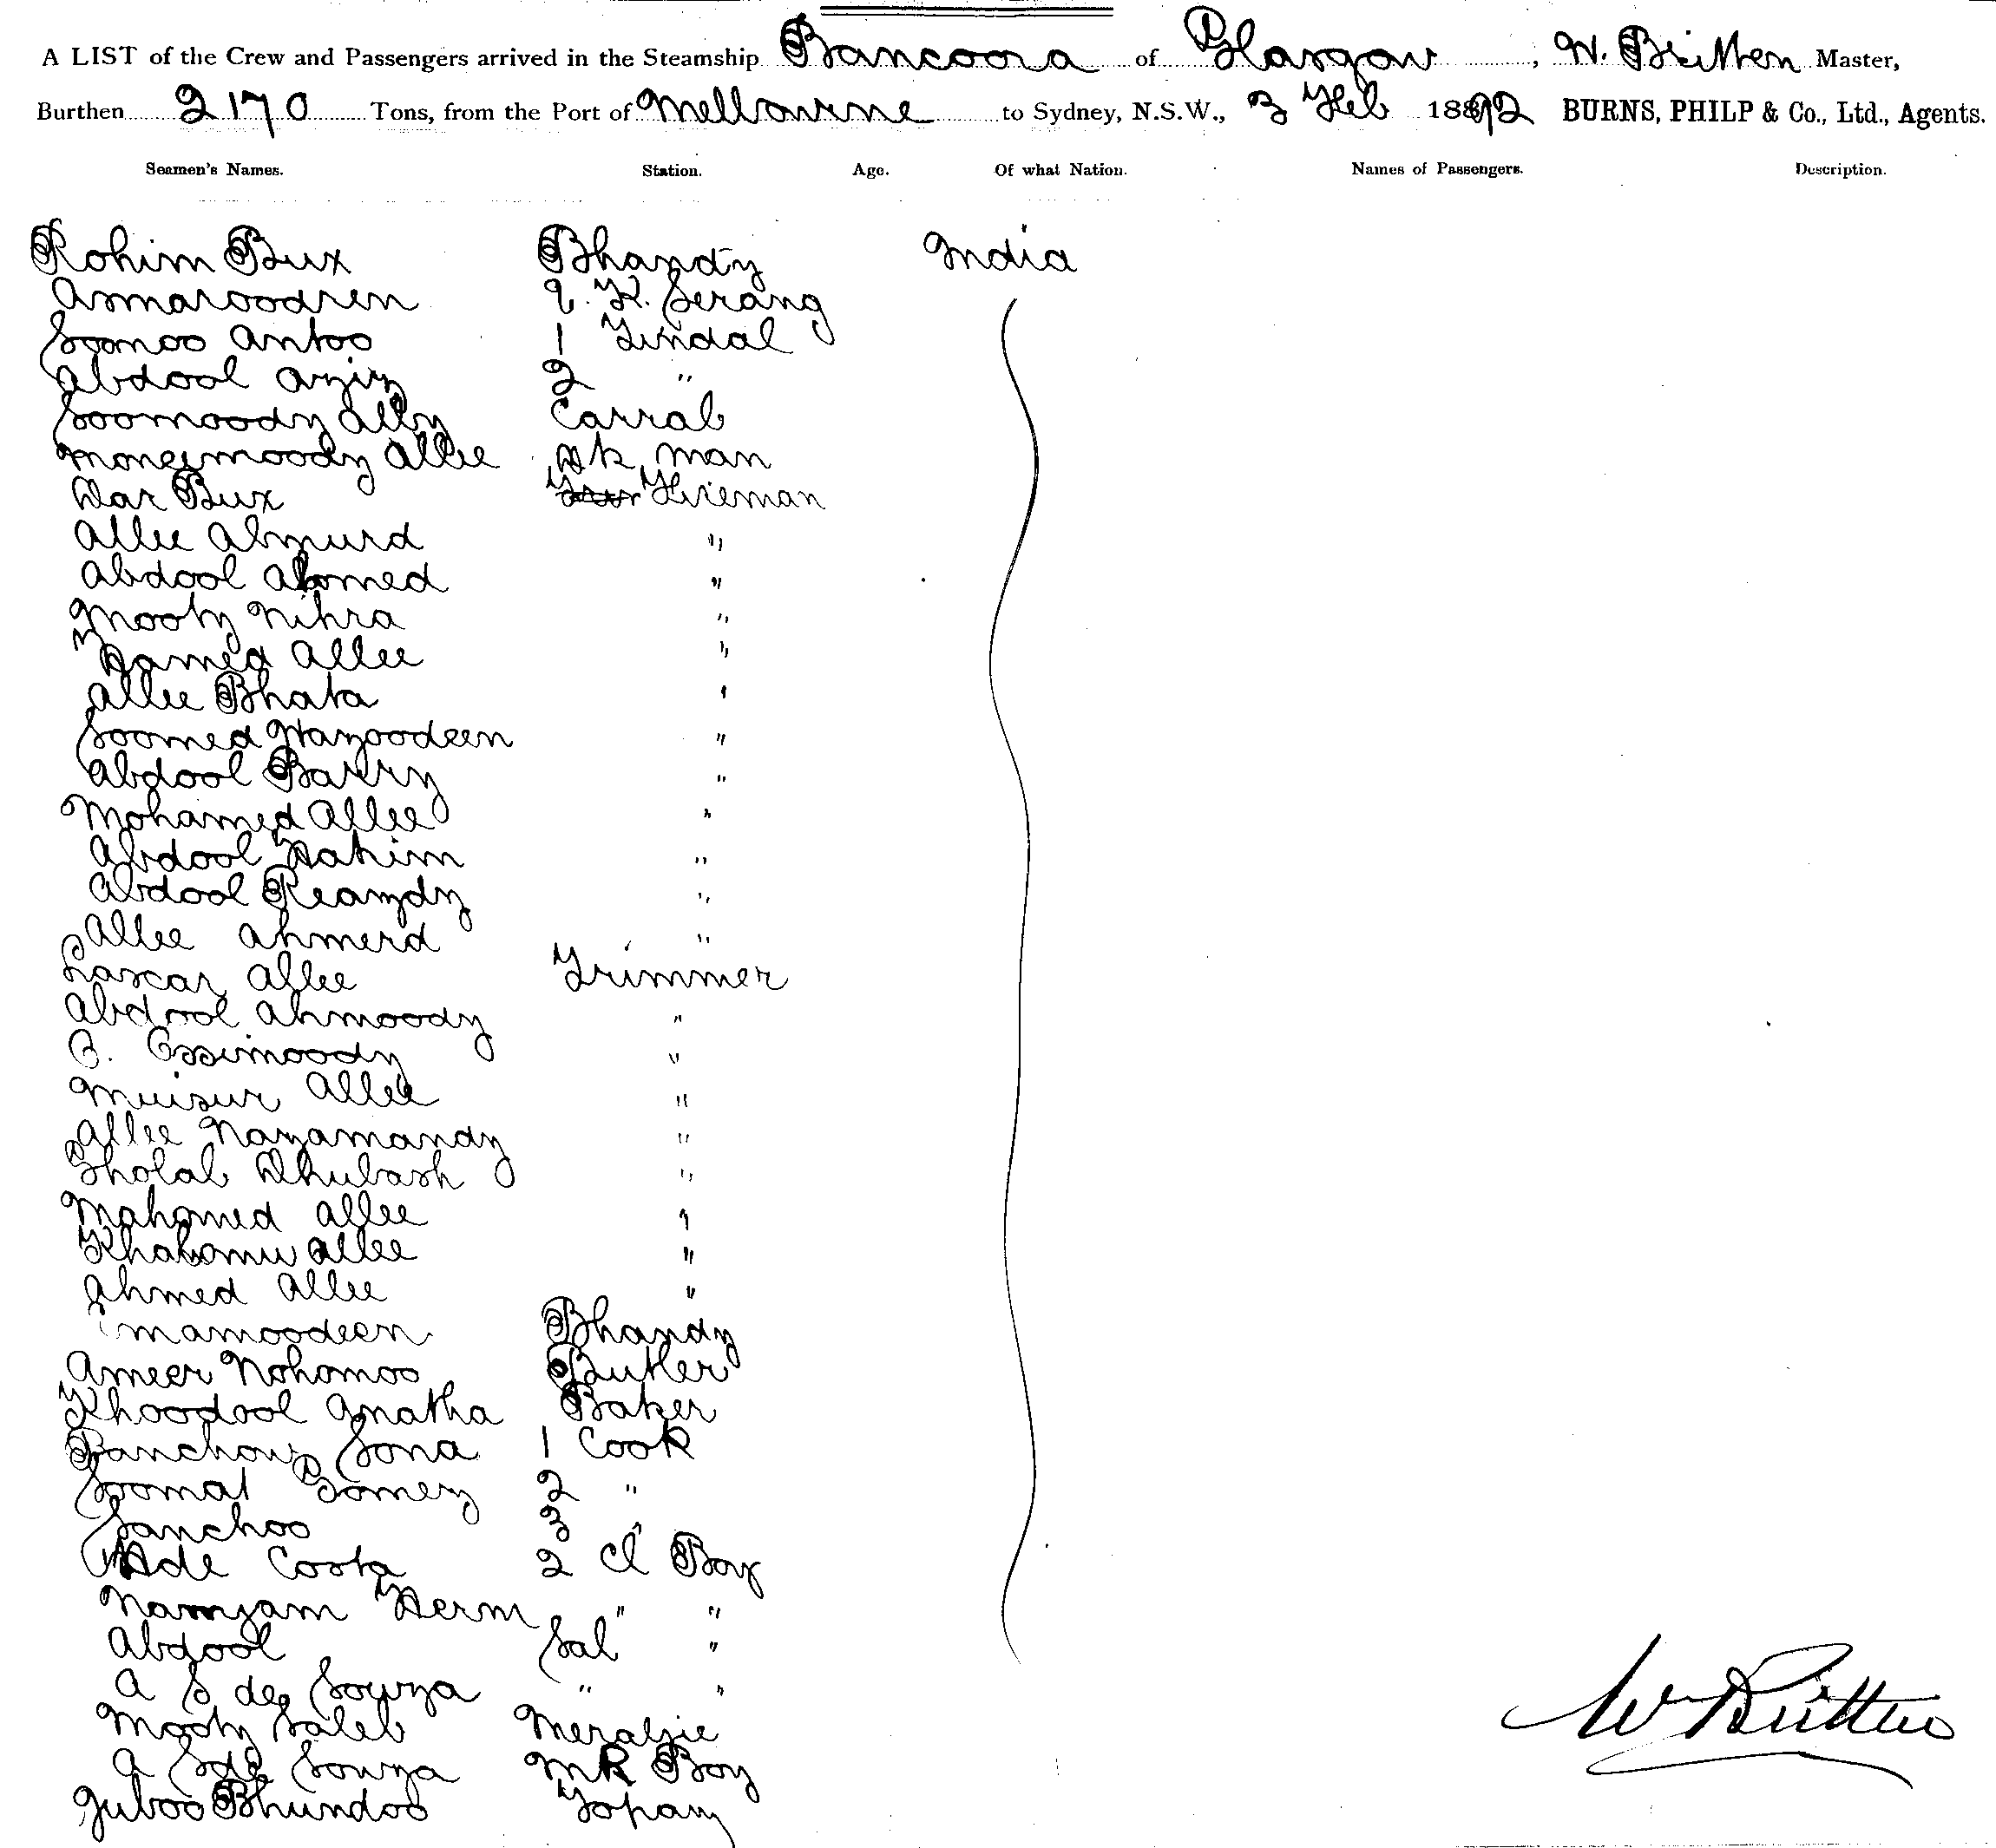 A LIST of the Crew and Passengers arrived in the Steamship Bancoora of Glasgow, W. Britten Master,
Burthen 2170 Tons, from the Port of Melbourne to Sydney, N.S.W., 3 Feb 1892 BURNS, PHILP & Co., Ltd., Agents.
Seamen's Names. Station. Age. Of what Nation. Names of Passengers. Description.
Rohim Bux Bhandy India
Asmaroodren Serang
Soomoo Antoo 1 Tindal
Abdool Aziz 2 "
Soomoody Ally Carrab
Moneymoody Allee Dk man
Dar Bux Fireman
Allee Ahmurd "
Abdool Ahomed "
Mooty Nihra "
Hamed Allee "
Allee Bhata "
Soomed Wazoodeen "
Abdool Barry "
Mohamed Allee "
Abdool Hakim "
Abdool Reamdy "
Allee Ahmerd "
Lascar Allee Trimmer
Abdool Ahmoody "
Essimoody "
Muisur Allee "
Allee Nazamandy "
Gholab Dhubash "
Mahomed Allee "
Khabomu Allee "
Ahmed Allee "
Imamoodeen Bhandy
Ameer Nohomoo Butler
Khoodool Anatha Baker
Sona 1 Cook
Soomat Gomez 2 "
Sanchoo 3 "
de Costa 2 Cl Boy
Namzam Herm " "
Abdool Sal "
A S de Souza " "
Mooty Saleb
A S de Souza Boy
Juboo Bhundoo Topaz
W Britten